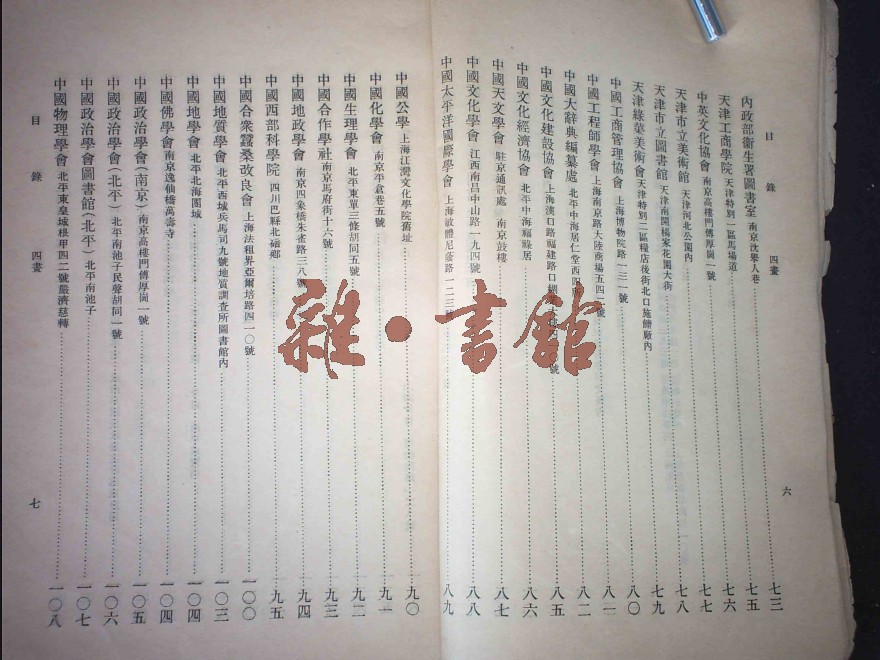 目 錄 四畫 六
內政部衞生署圖書室 南京沈舉人巷 七三
天津工商學院 天津特別一區馬場道 七五
中英文化協會 南京高樓門傅厚崗一號 七六
天津市立美術館 天津河北公園內 七七
天津市立圖書館 天津南開楊家花園大街 七八
天津綠蕖美術會 天津特別二區糧店後街北口施饍廠內 七九
中國工商管理協會 上海博物院路一三一號 八〇
中國工程師學會 上海南京路大陸商場五四二號 八一
中國大辭典編纂處 北平中海居仁堂西四 八二
中國文化建設協會 上海漢口路福建路口 號 八五
中國文化經濟協會 北平中海福祿居 八六
中國天文學會 駐京通訊處 南京鼓樓 八七
中國文化學會 江西南昌中山路一九四號 八八
中國太平洋國際學會 上海敏體尼蔭路一二三號 八九
中國公學 上海江灣文化學院舊址 九〇
中國化學會 南京平倉巷五號 九一
中國生理學會 北平東單三條胡同五號 九二
中國合作學社 南京馬府街十六號 九三
中國地政學會 南京四象橋朱雀路二八號 九四
中國西部科學院 四川巴縣北碚鄉 九五
中國合衆蠶桑改良會 上海法租界亞爾培路四一〇號 一〇〇
中國地質學會 北平西城兵馬司九號地質調查所圖書館內 一〇三
中國地學會 北平北海團城 一〇四
中國佛學會 南京逸仙橋萬壽寺 一〇四
中國政治學會(南京) 南京高樓門傅厚崗一號 一〇五
中國政治學會(北平) 北平南池子民聲胡同一號 一〇六
中國政治學會圖書館(北平) 北平南池子 一〇七
中國物理學會 北平東皇城根甲四二號嚴濟慈轉 一〇八
目 錄 四畫 七
雜·書館